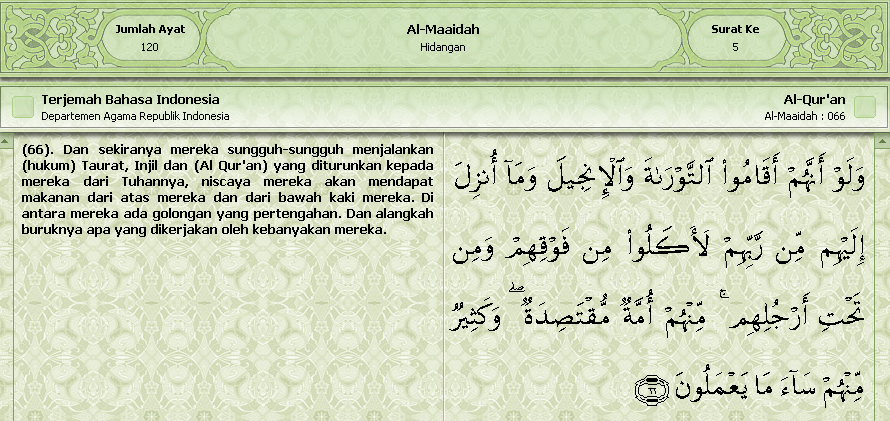 Jumlah Ayat
120
Al-Maaidah
Hidangan
Surat Ke
5
Terjemah Bahasa Indonesia
Departemen Agama Republik Indonesia
Al-Qur'an
Al-Maaidah : 066
(66). Dan sekiranya mereka sungguh-sungguh menjalankan
(hukum) Taurat, Injil dan (Al Qur'an) yang diturunkan kepada
mereka dari Tuhannya, niscaya mereka akan mendapat
makanan dari atas mereka dan dari bawah kaki mereka. Di
antara mereka ada golongan yang pertengahan. Dan alangkah
buruknya apa yang dikerjakan oleh kebanyakan mereka.
وَلَوْ أَنَّهُمْ أَقَامُوا۟ ٱلتَّوْرَىٰةَ وَٱلْإِنجِيلَ وَمَآ أُنزِلَ
إِلَيْهِم مِّن رَّبِّهِمْ لَأَكَلُوا۟ مِن فَوْقِهِمْ وَمِن
تَحْتِ أَرْجُلِهِم ۚ مِّنْهُمْ أُمَّةٌ مُّقْتَصِدَةٌ ۖ وَكَثِيرٌ
مِّنْهُمْ سَآءَ مَا يَعْمَلُونَ ﴿٦٦﴾